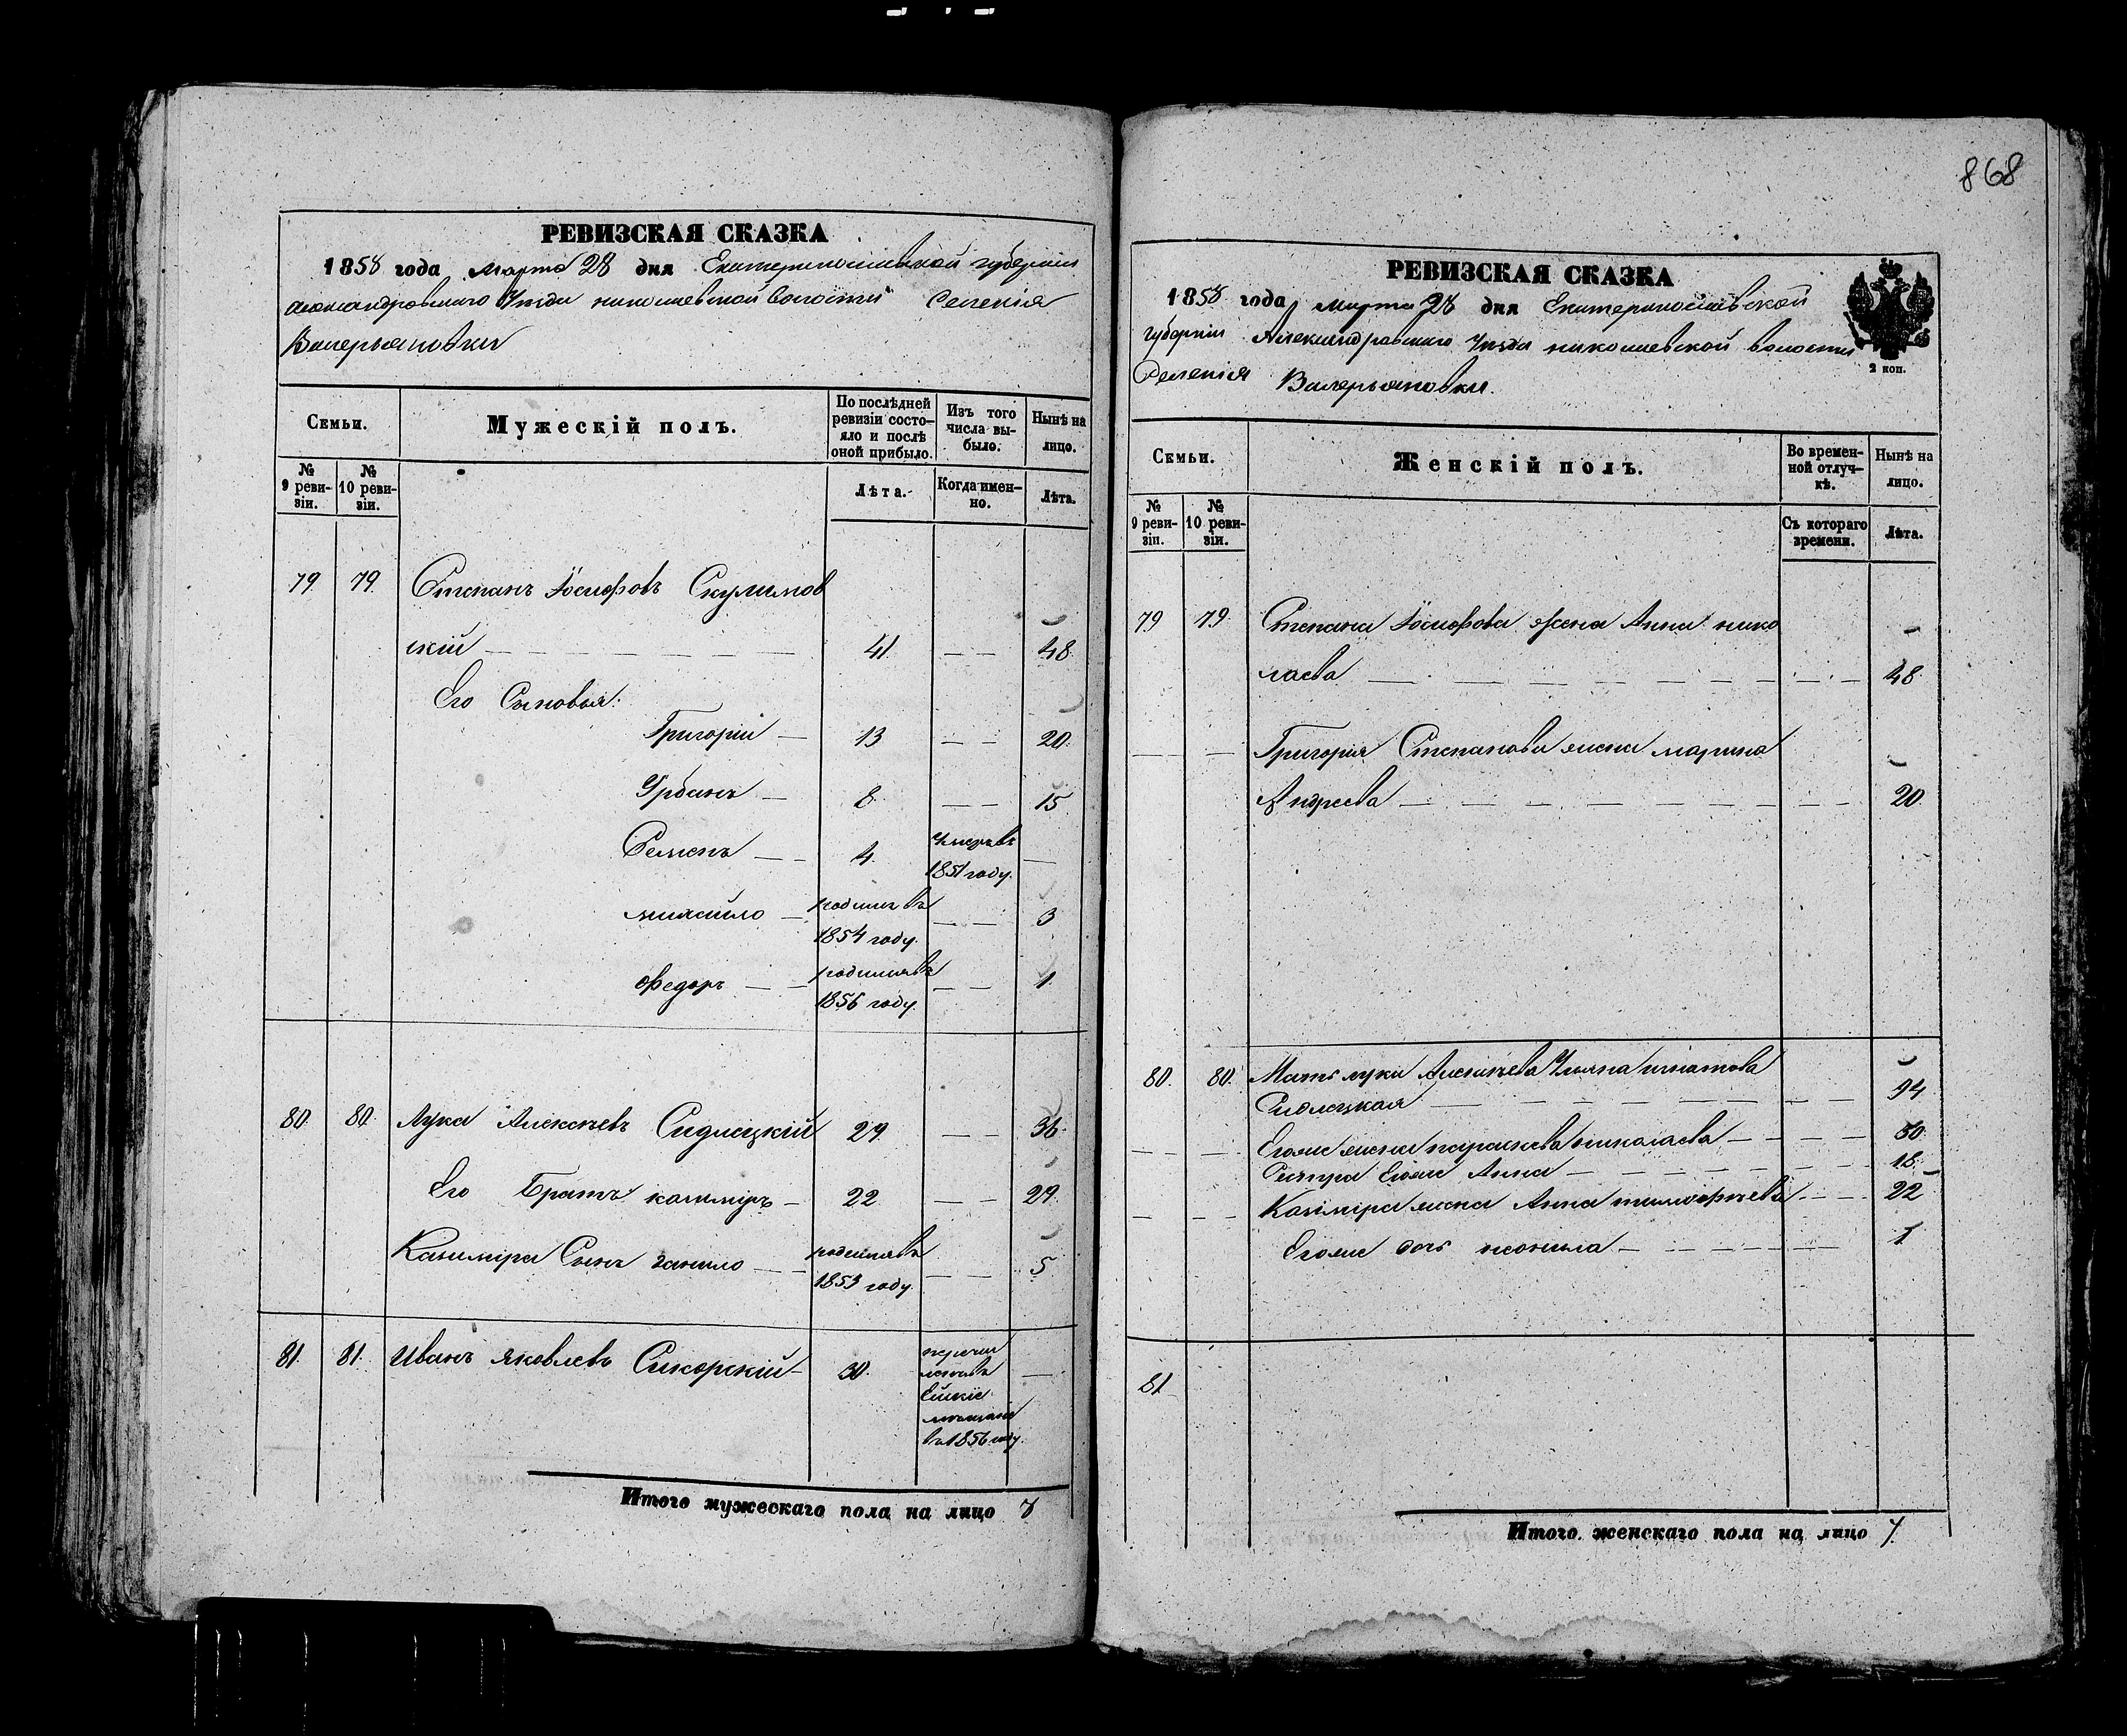 868
РЕВИЗСКАЯ СКАЗКА
1858 года Марта 28 дня Екатеринославской губернии
Александровскаго Уѣзда николаевской волости Селенія
Валерьяновки
Семьи.
Мужескій полъ.
По послѣдней ревизіи состояло и послѣ оной прибыло.
Изъ того числа выбыло.
Нынѣ на лицо.
№ 9 ревизіи.
№ 10 ревизіи.
Лѣта.
Когда именно.
Лѣта.
79 79 Степанъ Іосифовъ Скулимов
скій 41 48
Его Сыновья:
Григорій 13 20
Урбанъ 8 15
Семенъ 4 Умеръ въ 1851 году.
михайло родился въ 1854 году. 3
Федоръ родился въ 1856 году. 1
80 80 Лука Алексѣевъ Сидлецкій 29 36
Его Братъ казимиръ 22 29
Казимира Сынъ родился въ 1853 году 5
81. 81. Иванъ Яковлевъ Сикорскій 30.
перечис
ленъ въ
Ейскіе
мѣщане
въ 1856 году.
Итого мужескаго пола на лицо 8
РЕВИЗСКАЯ СКАЗКА
1858 года марта 28 дня Екатеринославской
губерніи Александровскаго Уѣзда николаевской волости
Селенія Валерьяновки.
2 коп.
Семьи.
Женскій полъ.
Во временной отлучкѣ.
Нынѣ на лицо.
№ 9 ревизіи.
№ 10 ревизіи.
Съ котораго времени.
Лѣта.
79 79 Степана Іосифова жена Анна нико
лаева 48
Григорія Степанова жена марина
Андреева 20
80. 80. Мать луки Алексѣева Ульяна игнатова
Сидлецкая 94
Егоже жена параскева николаева 30
Сестра Егоже Анна 18
Казіміра жена Анна тимофѣева 22
Егоже дочь 1
81
Итого женскаго пола на лицо 7.